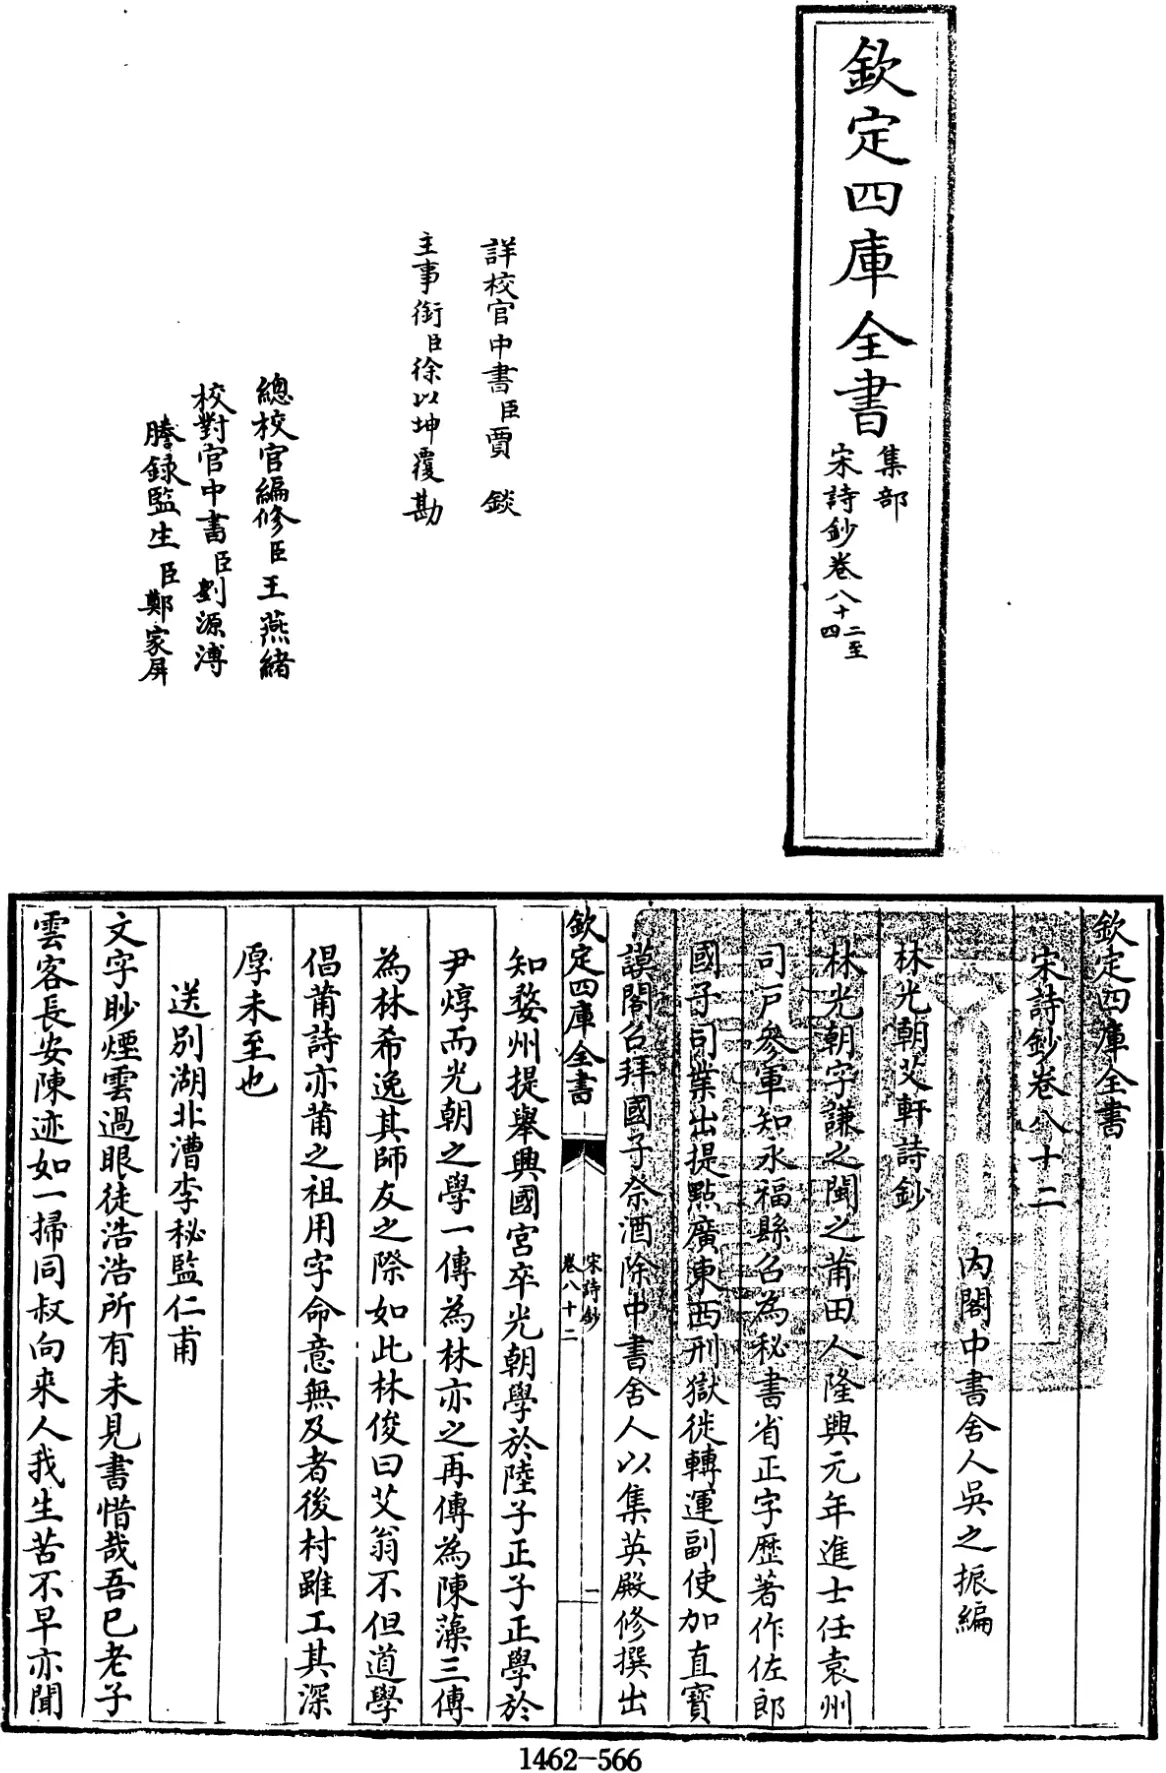 欽定四庫全書
集部
宋詩鈔卷八十二至
四
詳校官中書臣賈錟
主事銜臣徐以坤覆勘
總校官編修臣王燕緒
校對官中書臣劉源溥
謄錄監生臣鄭家屏
欽定四庫全書
宋詩鈔卷八十二
內閣中書舍人吳之振編
林光朝艾軒詩鈔
林光朝字謙之閩之莆田人隆興元年進士任袁州
司戶參軍知永福縣召為秘書省正字歷著作佐郎
國子司業出提點廣東西刑獄徙轉運副使加直寶
謨閣召拜國子祭酒除中書舍人以集英殿修撰出
欽定四庫全書
宋詩鈔
卷八十二
一
知婺州提舉興國宮卒光朝學於陸子正子正學於
尹焞而光朝之學一傳為林亦之再傳為陳藻三傳
為林希逸其師友之際如此林俊曰艾翁不但道學
倡莆詩亦莆之祖用字命意無及者後村雖工其深
厚未至也
送別湖北漕李秘監仁甫
文字眇煙雲過眼徒浩浩所有未見書惜哉吾已老子
雲客長安陳迹如一掃同叔向來人我生苦不早亦聞
1462-566